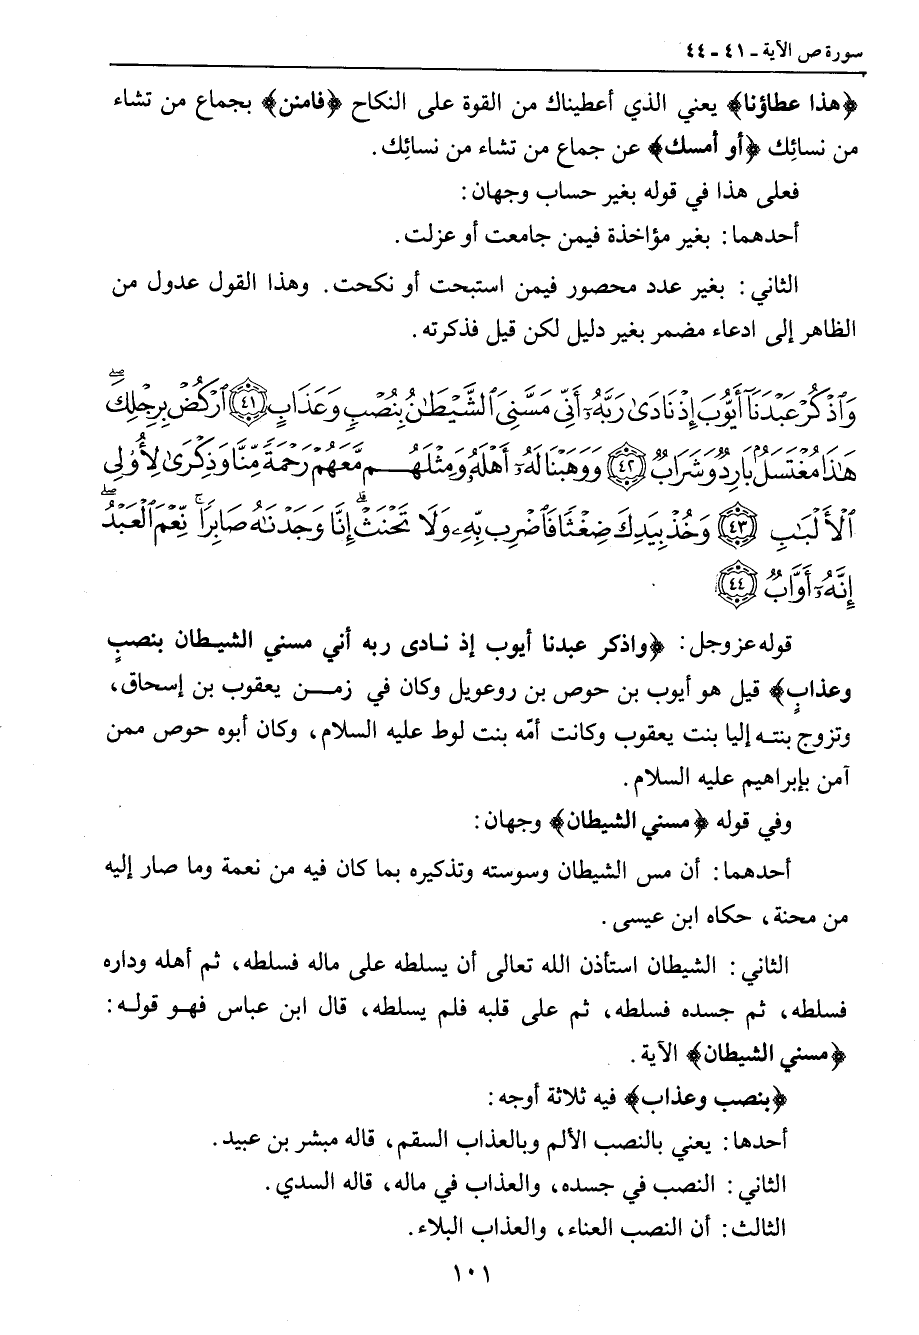 سورة ص الآية ـ ٤١ - ٤٤
﴿هذا عطاؤنا﴾ يعني الذي أعطيناك من القوة على النكاح ﴿فامنن﴾ بجماع من تشاء
من نسائك ﴿أو أمسك﴾ عن جماع من تشاء من نسائك.
فعلى هذا في قوله بغير حساب وجهان:
أحدهما: بغير مؤاخذة فيمن جامعت أو عزلت.
الثاني: بغير عدد محصور فيمن استبحت أو نكحت. وهذا القول عدول من
الظاهر إلى ادعاء مضمر بغير دليل لكن قيل فذكرته.
وَٱذْكُرْ عَبْدَنَآ أَيُّوبَ إِذْ نَادَىٰ رَبَّهُۥٓ أَنِّى مَسَّنِىَ ٱلشَّيْطَٰنُ بِنُصْبٍ وَعَذَابٍ ﴿٤١﴾ ٱرْكُضْ بِرِجْلِكَۖ
هَٰذَا مُغْتَسَلٌۢ بَارِدٌ وَشَرَابٌ ﴿٤٢﴾ وَوَهَبْنَا لَهُۥٓ أَهْلَهُۥ وَمِثْلَهُم مَّعَهُمْ رَحْمَةً مِّنَّا وَذِكْرَىٰ لِأُو۟لِى
ٱلْأَلْبَٰبِ ﴿٤٣﴾ وَخُذْ بِيَدِكَ ضِغْثًا فَٱضْرِب بِّهِۦ وَلَا تَحْنَثْۗ إِنَّا وَجَدْنَٰهُ صَابِرًاۚ نِّعْمَ ٱلْعَبْدُۖ
إِنَّهُۥٓ أَوَّابٌ ﴿٤٤﴾
قوله عز وجل: ﴿واذكر عبدنا أيوب إذ نادى ربه أني مسني الشيطان بنصبٍ
وعذابٍ﴾ قيل هو أيوب بن حوص بن روعويل وكان في زمن يعقوب بن إسحاق،
وتزوج بنته إليا بنت يعقوب وكانت أمّه بنت لوط عليه السلام، وكان أبوه حوص ممن
آمن بإبراهيم عليه السلام.
وفي قوله ﴿مسني الشيطان﴾ وجهان:
أحدهما: أن مس الشيطان وسوسته وتذكيره بما كان فيه من نعمة وما صار إليه
من محنة، حكاه ابن عيسى.
الثاني: الشيطان استأذن الله تعالى أن يسلطه على ماله فسلطه، ثم أهله وداره
فسلطه، ثم جسده فسلطه، ثم على قلبه فلم يسلطه، قال ابن عباس فهو قوله:
﴿مسني الشيطان﴾ الآية.
﴿بنصب وعذاب﴾ فيه ثلاثة أوجه:
أحدها: يعني بالنصب الألم وبالعذاب السقم، قاله مبشر بن عبيد.
الثاني: النصب في جسده، والعذاب في ماله، قاله السدي.
الثالث: أن النصب العناء، والعذاب البلاء.
١٠١